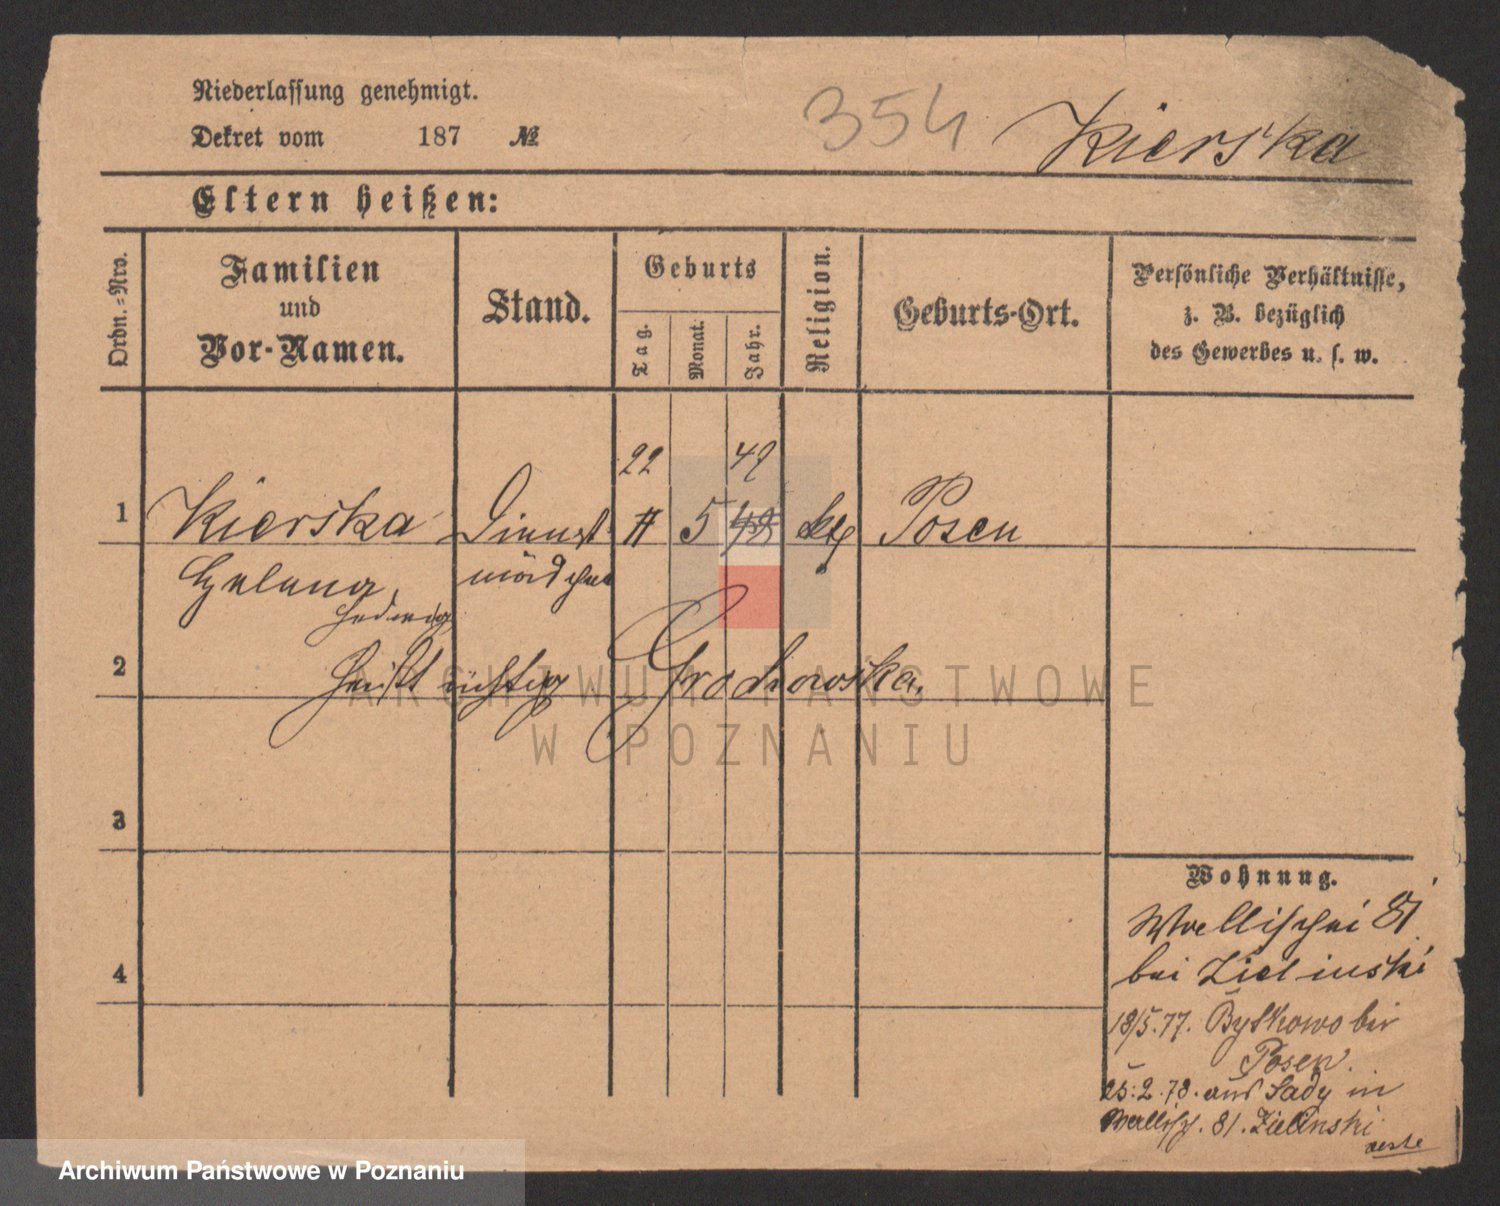 Niederlassung genehmigt.
354
Kierska
Dekret vom 187 №
Eltern heißen:
Ordn.=Nro.
Familien
und
Vor-Namen.
Stand.
Geburts
Tag.
Monat.
Jahr.
Religion.
Geburts-Ort.
Persönliche Verhältnisse,
z. B. bezüglich
des Gewerbes u. s. w.
22 49
1 Kierska Dienst 5 Posen
Helena mädchen
Hedwig
2 heißt richtig Grochowska.
ARCHIWUM PAŃSTWOWE
W POZNANIU
3
4
Wohnung.
Wallischei 81
bei Zielinski
18/5.77. Bytkowo bei
Posen.
25.2.78. aus Sady in
Wallisch. 81. Zielinski
Archiwum Państwowe w Poznaniu